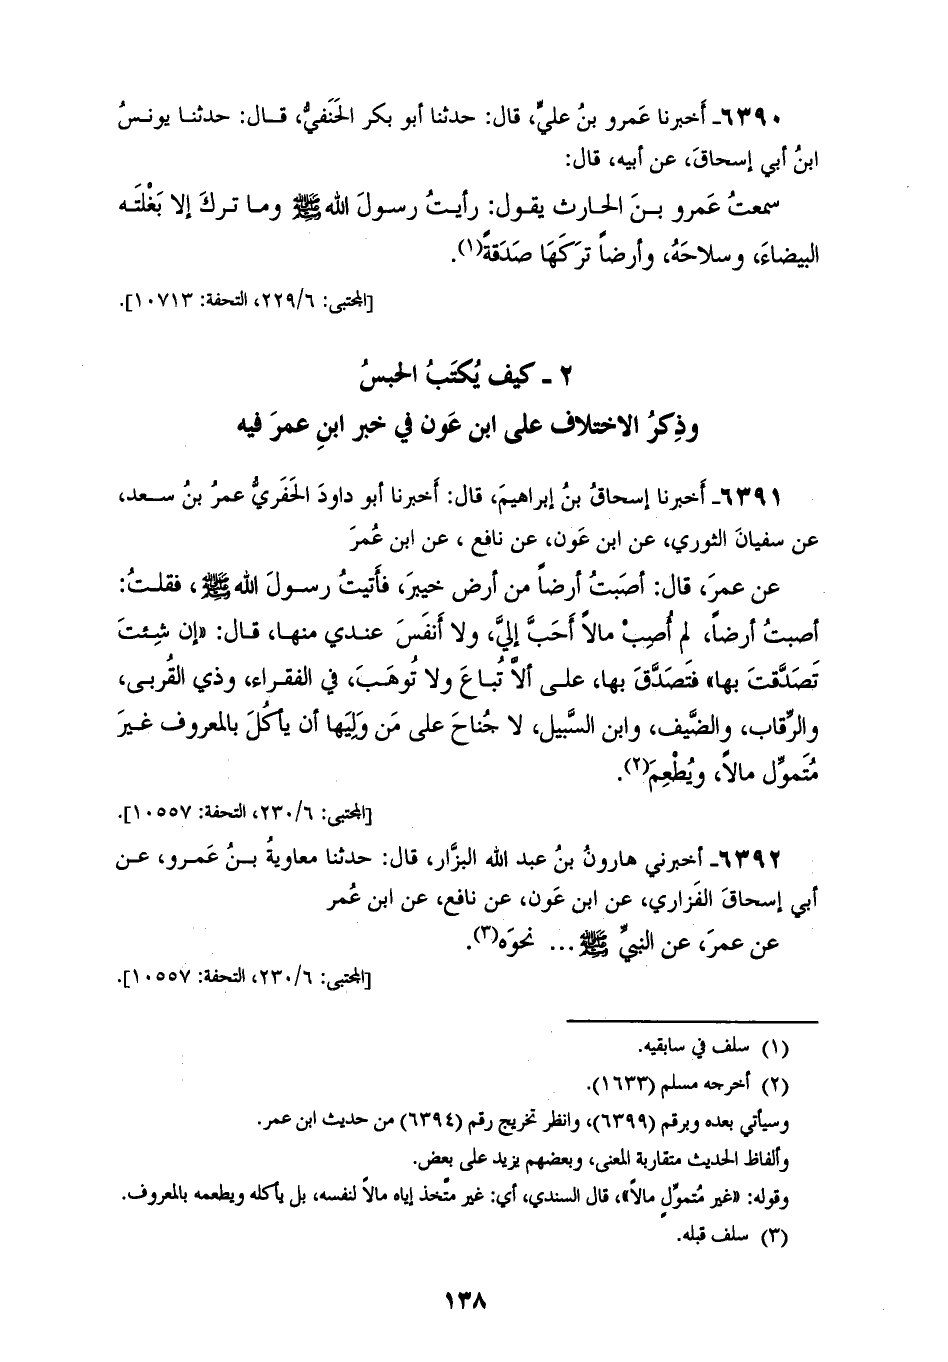 ٦٣٩٠ـ أَخبرنا عَمرو بنُ عليٍّ، قال: حدثنا أبو بكر الحَنَفيُّ، قـال: حدثنـا يونـسُ
ابنُ أبي إسحاقَ، عن أبيه، قال:
سمعتُ عَمرو بـنَ الحـارث يقـول: رأيـتُ رسـولَ اللهﷺ ومـا تـركَ إلا بَغْلَتَـه
البيضاءَ، وسلاحَهُ، وأرضاً تركَهَا صَدَقةً(١).
[المجتبى: ٢٢٩/٦، التحفة: ١٠٧١٣].
٢ ـ كيف يُكتَبُ الحبسُ
وذِكرُ الاختلاف على ابن عَون في خبر ابنِ عمرَ فيه
٦٣٩١ـ أَخبرنا إسحاقُ بنُ إبراهيمَ، قال: أَخبرنا أبو داودَ الحَفَريُّ عمرُ بنُ سـعد،
عن سفيانَ الثوري، عن ابن عَون، عن نافع ، عن ابن عُمرَ
عن عمرَ، قال: أصبَتُ أرضاً من أرض خيبرَ، فأَتيتُ رسـولَ اللهﷺ، فقلـتُ:
أصبتُ أرضاً، لم أُصِبْ مالاً أَحَبَّ إليَّ، ولا أَنفَسَ عنـدي منهـا، قـال: «إن شِـئتَ
تَصَدَّقتَ بها» فتَصَدَّقَ بها، علـى ألاَّ تُبـاعَ ولا تُوهَـبَ، في الفقـراء، وذي القُربـى،
والرِّقاب، والضَّيف، وابن السَّبيل، لا جُناحَ على مَن وَلِيَها أن يأكُلَ بالمعروف غـيرَ
مُتَموِّل مالاً، ويُطْعِمَ(٢).
[المجتبى: ٢٣٠/٦، التحفة: ١٠٥٥٧].
٦٣٩٢ـ أخبرني هارونُ بنُ عبد الله البزَّار، قال: حدثنا معاويةُ بـنُ عَمـرو، عـن
أبي إسحاقَ الفَزاري، عن ابن عَون، عن نافع، عن ابن عُمر
عن عمرَ، عن النبيِّ ﷺ ... نحوَه(٣).
[المجتبى: ٢٣٠/٦، التحفة: ١٠٥٥٧].
(١) سلف في سابقيه.
(٢) أخرجه مسلم (١٦٣٣).
وسيأتي بعده وبرقم (٦٣٩٩)، وانظر تخريج رقم (٦٣٩٤) من حديث ابن عمر.
وألفاظ الحديث متقاربة المعنى، وبعضهم يزيد على بعض.
وقوله: «غير مُتموِّلٍ مالاً»، قال السندي، أي: غير متَّخذ إياه مالاً لنفسه، بل يأكله ويطعمه بالمعروف.
(٣) سلف قبله.
١٣٨